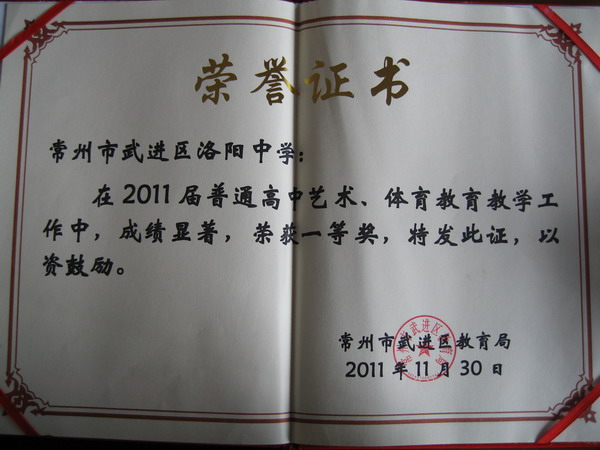 荣誉证书
常州市武进区洛阳中学：
在2011届普通高中艺术、体育教育教学工
作中，成绩显著，荣获一等奖，特发此证，以
资鼓励。
常州市武进区教育局
2011年11月30日